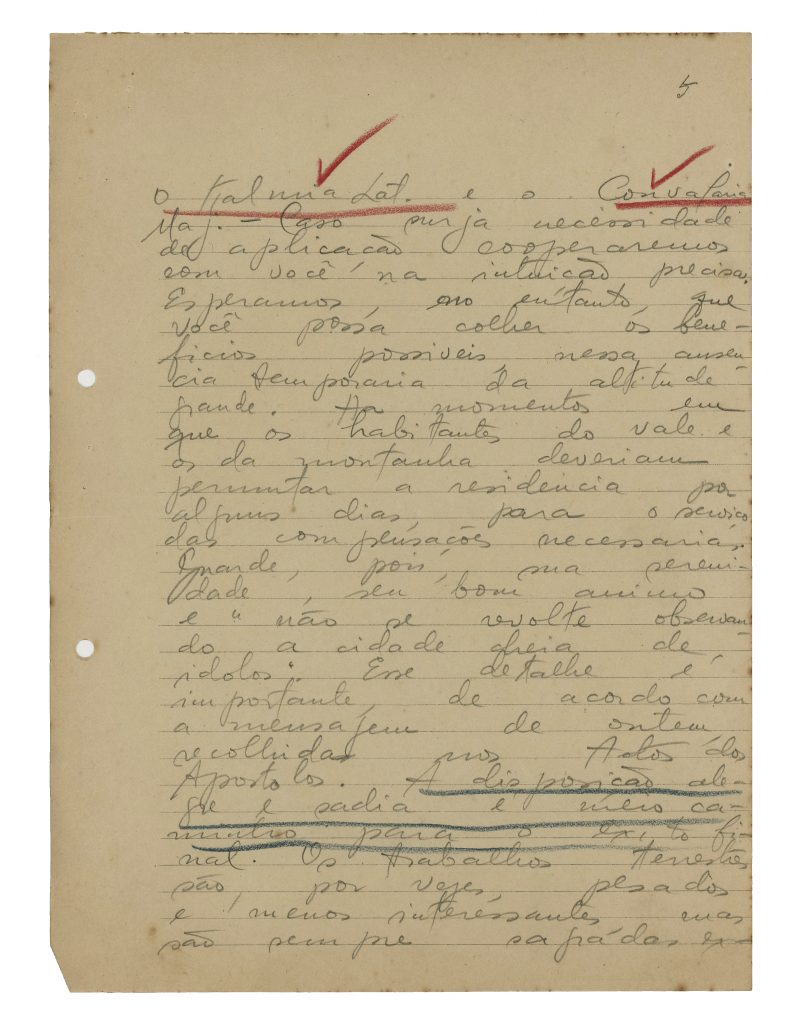 5
O Kalmia Lat. e o Convalaria
Maj. – Caso surja necessidade
de aplicacão cooperaremos
com você na intuicão precisa.
Esperamos, no entanto, que
você possa colher os bene-
ficios possiveis nessa ausen-
cia temporaria da altitude
grande. Ha momentos em
que os habitantes do vale e
os da montanha deveriam
permutar a residencia por
alguns dias, para o serviço
das compensações necessarias.
Guarde, pois, sua sereni-
dade, seu bom animo
e "não se revolte observan
do a cidade cheia de
idolos". Esse detalhe é
importante, de acordo com
a mensagem de ontem,
recolhida nos Actos dos
Apostolos. A disposicão ale-
gre e sadia é meio ca-
minho para o exito fi-
nal. Os trabalhos terrestres
são, por vezes, pesados
e menos interessantes mas
são sempre sagrádas ex-